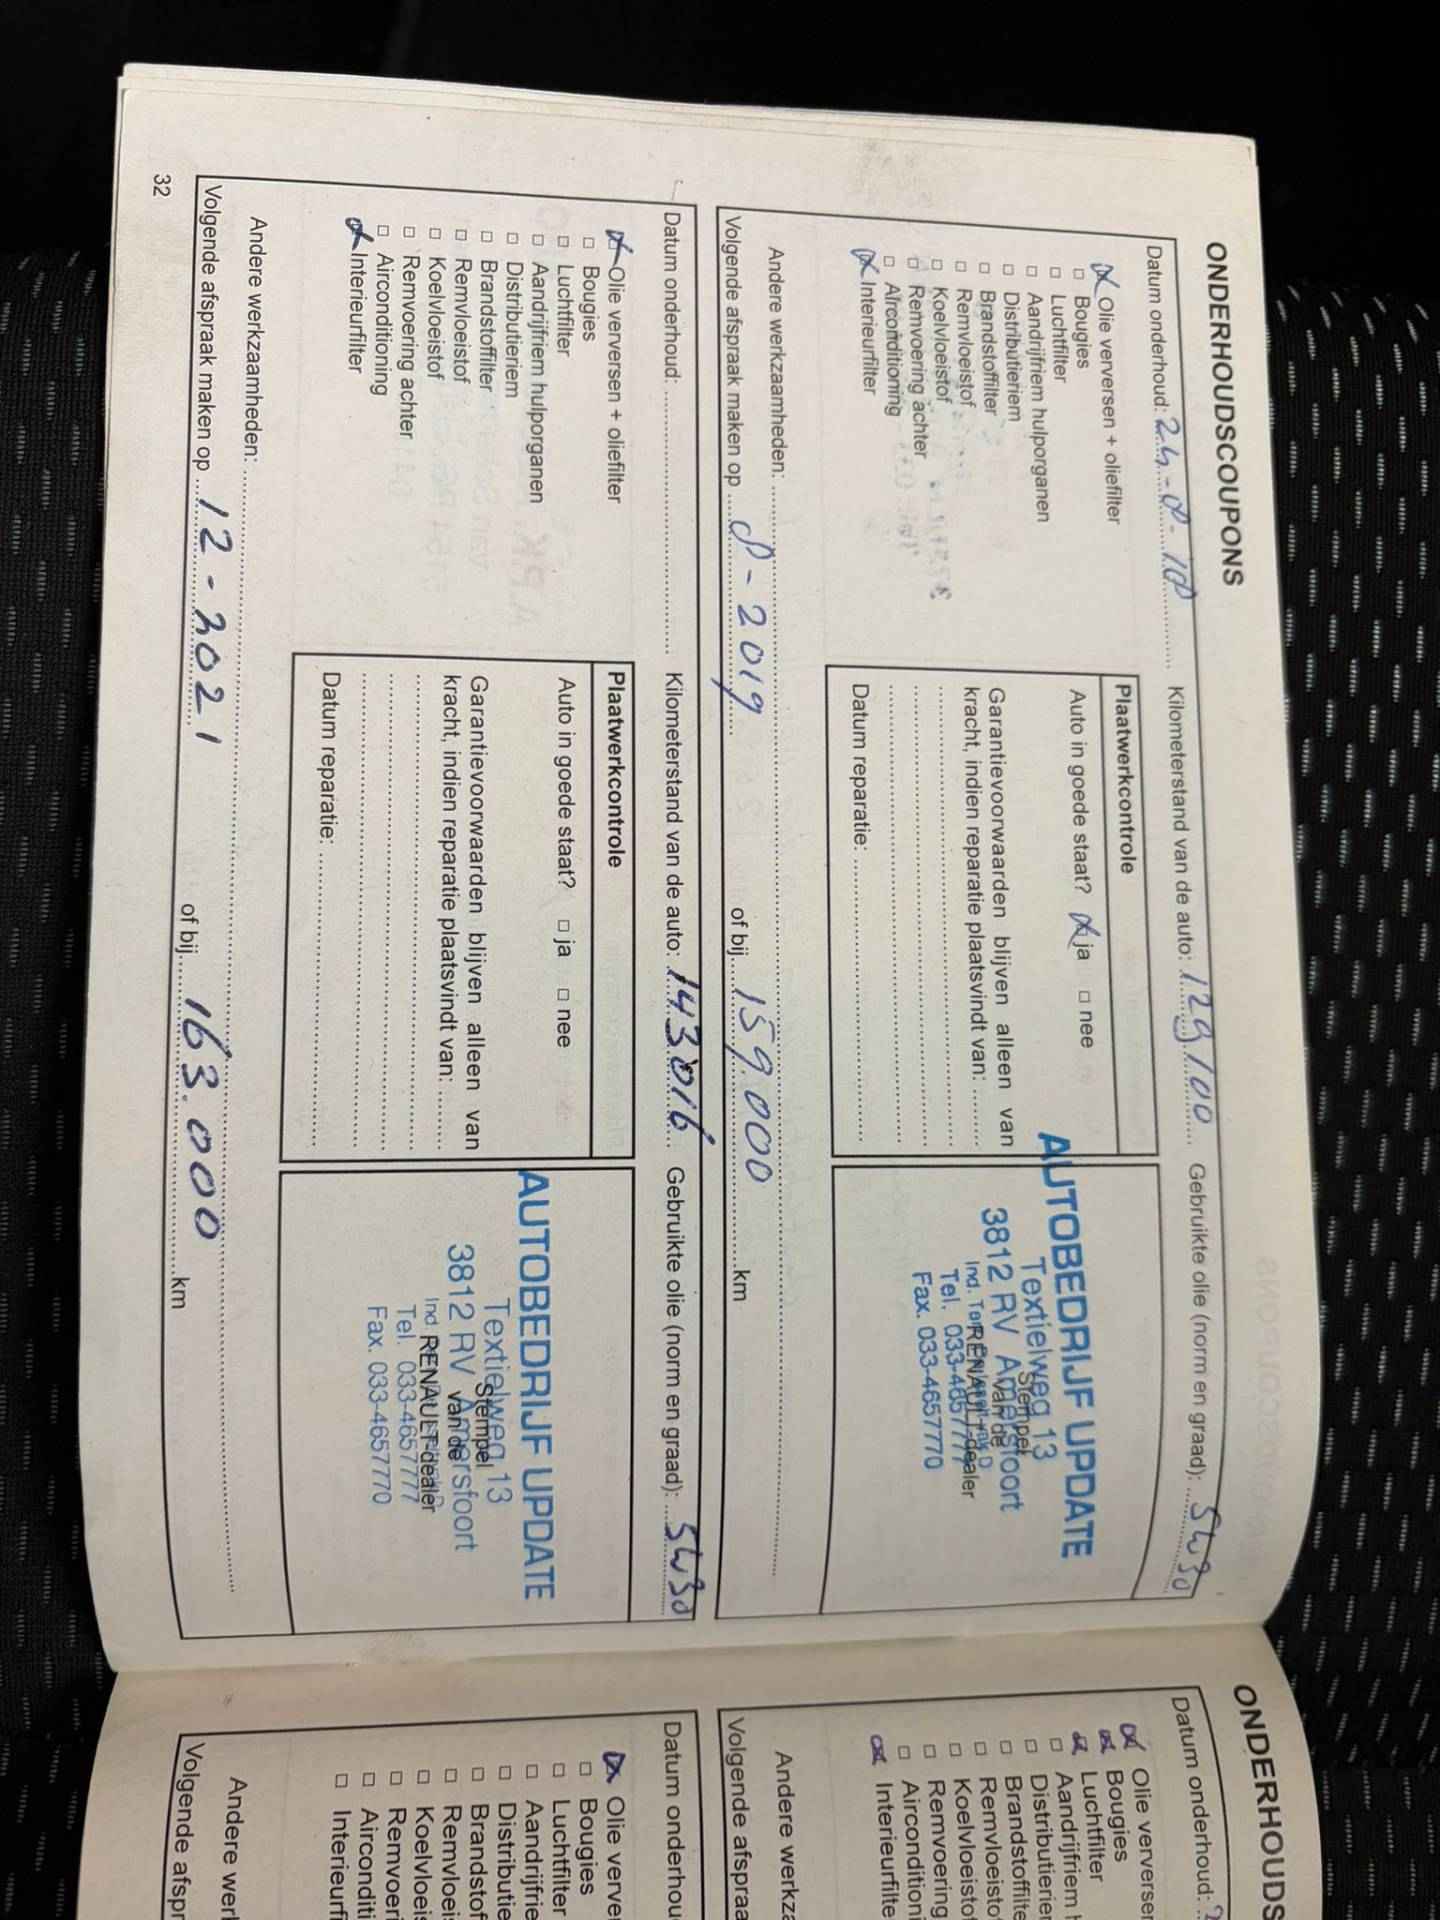 ONDERHOUDSCOUPONS
Datum onderhoud: 24-8-18 Kilometerstand van de auto: 129100 Gebruikte olie (norm en graad): 5W30
Olie verversen + oliefilter
Bougies
Luchtfilter
Aandrijfriem hulporganen
Distributieriem
Brandstoffilter
Remvloeistof
Koelvloeistof
Remvoering achter
Airconditioning
Interieurfilter
Plaatwerkcontrole
Auto in goede staat? ja nee
Garantievoorwaarden blijven alleen van
kracht, indien reparatie plaatsvindt van:
Datum reparatie:
AUTOBEDRIJF UPDATE
Textielweg 13
3812 RV Amersfoort
Tel. 033-4657777
Fax. 033-4657770
Stempel
van de
RENAULT-dealer
Andere werkzaamheden:
Volgende afspraak maken op 8-2019 of bij 159000 km
Datum onderhoud: Kilometerstand van de auto: 143016 Gebruikte olie (norm en graad): 5W30
Olie verversen + oliefilter
Bougies
Luchtfilter
Aandrijfriem hulporganen
Distributieriem
Brandstoffilter
Remvloeistof
Koelvloeistof
Remvoering achter
Airconditioning
Interieurfilter
Plaatwerkcontrole
Auto in goede staat? ja nee
Garantievoorwaarden blijven alleen van
kracht, indien reparatie plaatsvindt van:
Datum reparatie:
AUTOBEDRIJF UPDATE
Textielweg 13
3812 RV Amersfoort
Ind.
Tel. 033-4657777
Fax. 033-4657770
Stempel
van de
RENAULT-dealer
Andere werkzaamheden:
Volgende afspraak maken op 12-2021 of bij 163.000 km
32
ONDERHOUDS
Datum onderhoud:
Olie verversen
Bougies
Luchtfilter
Aandrijfriem h
Distributierier
Brandstoffilte
Remvloeistof
Koelvloeistof
Remvoering
Aircondition
Interieurfilte
Andere werkza
Volgende afspraa
Datum onderhou
Olie verver
Bougies
Luchtfilter
Aandrijfrie
Distributie
Brandstof
Remvloeis
Koelvloeis
Remvoeri
Airconditi
Interieurfi
Andere werl
Volgende afspr